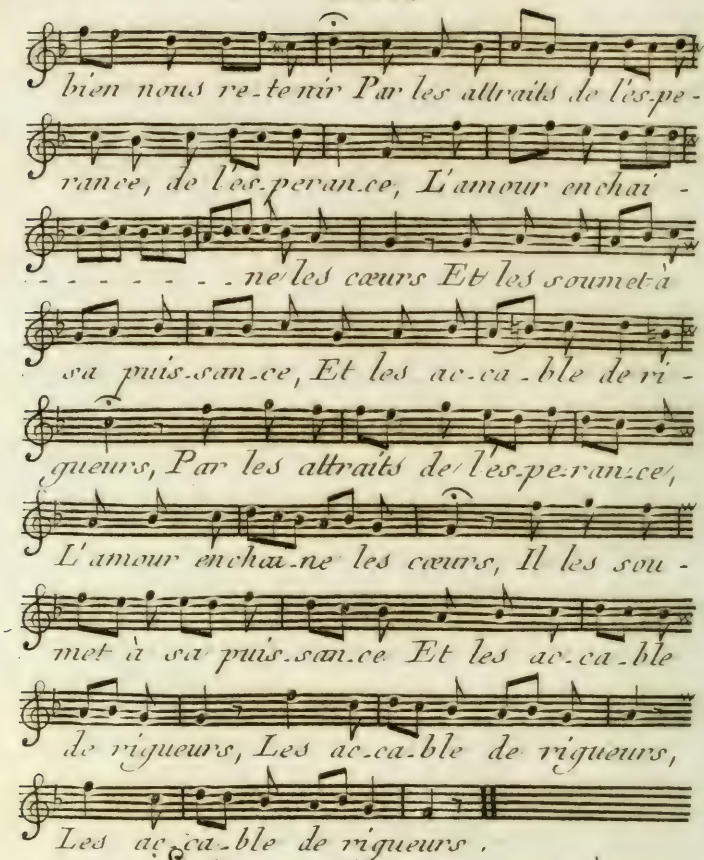 bien nous re-te nir Par les attraits de l'es-pe-
rance, de l'es-peran-ce, L'amour enchai -
- - - - - - - ne les cœurs Et les soumet à
sa puis-san-ce, Et les ac-ca-ble de ri-
gueurs, Par les attraits de l'es-pe-ran-ce,
L'amour enchai-ne les cœurs, Il les sou -
met à sa puis-san-ce Et les ac-ca-ble
de rigueurs, Les ac-ca-ble de rigueurs,
Les ac-ca-ble de rigueurs.